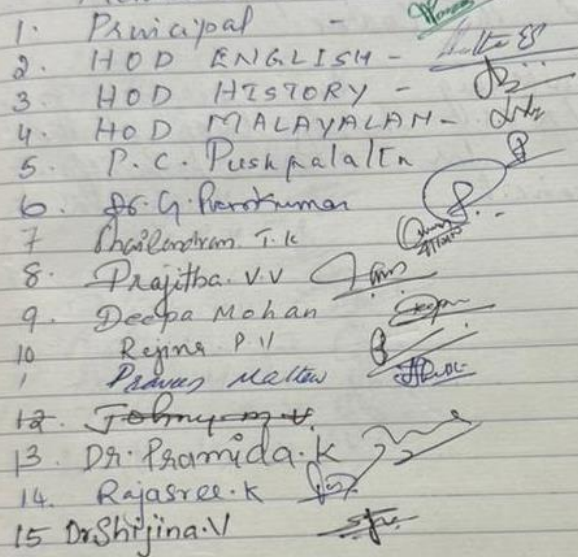 1. Principal -
2. HOD ENGLISH -
3 HOD HISTORY -
4. HOD MALAYALAM -
5. P. C. Pushpalatha
6. Dr. G. Premkumar
7 Shailendran T. K
8. Prajitha. V. V
9. Deepa Mohan
10 Rejina P V
1 Praveen Mathew
12. Johny
13. Dr. Pramida. K
14. Rajasree. K
15 Dr Shijina. V